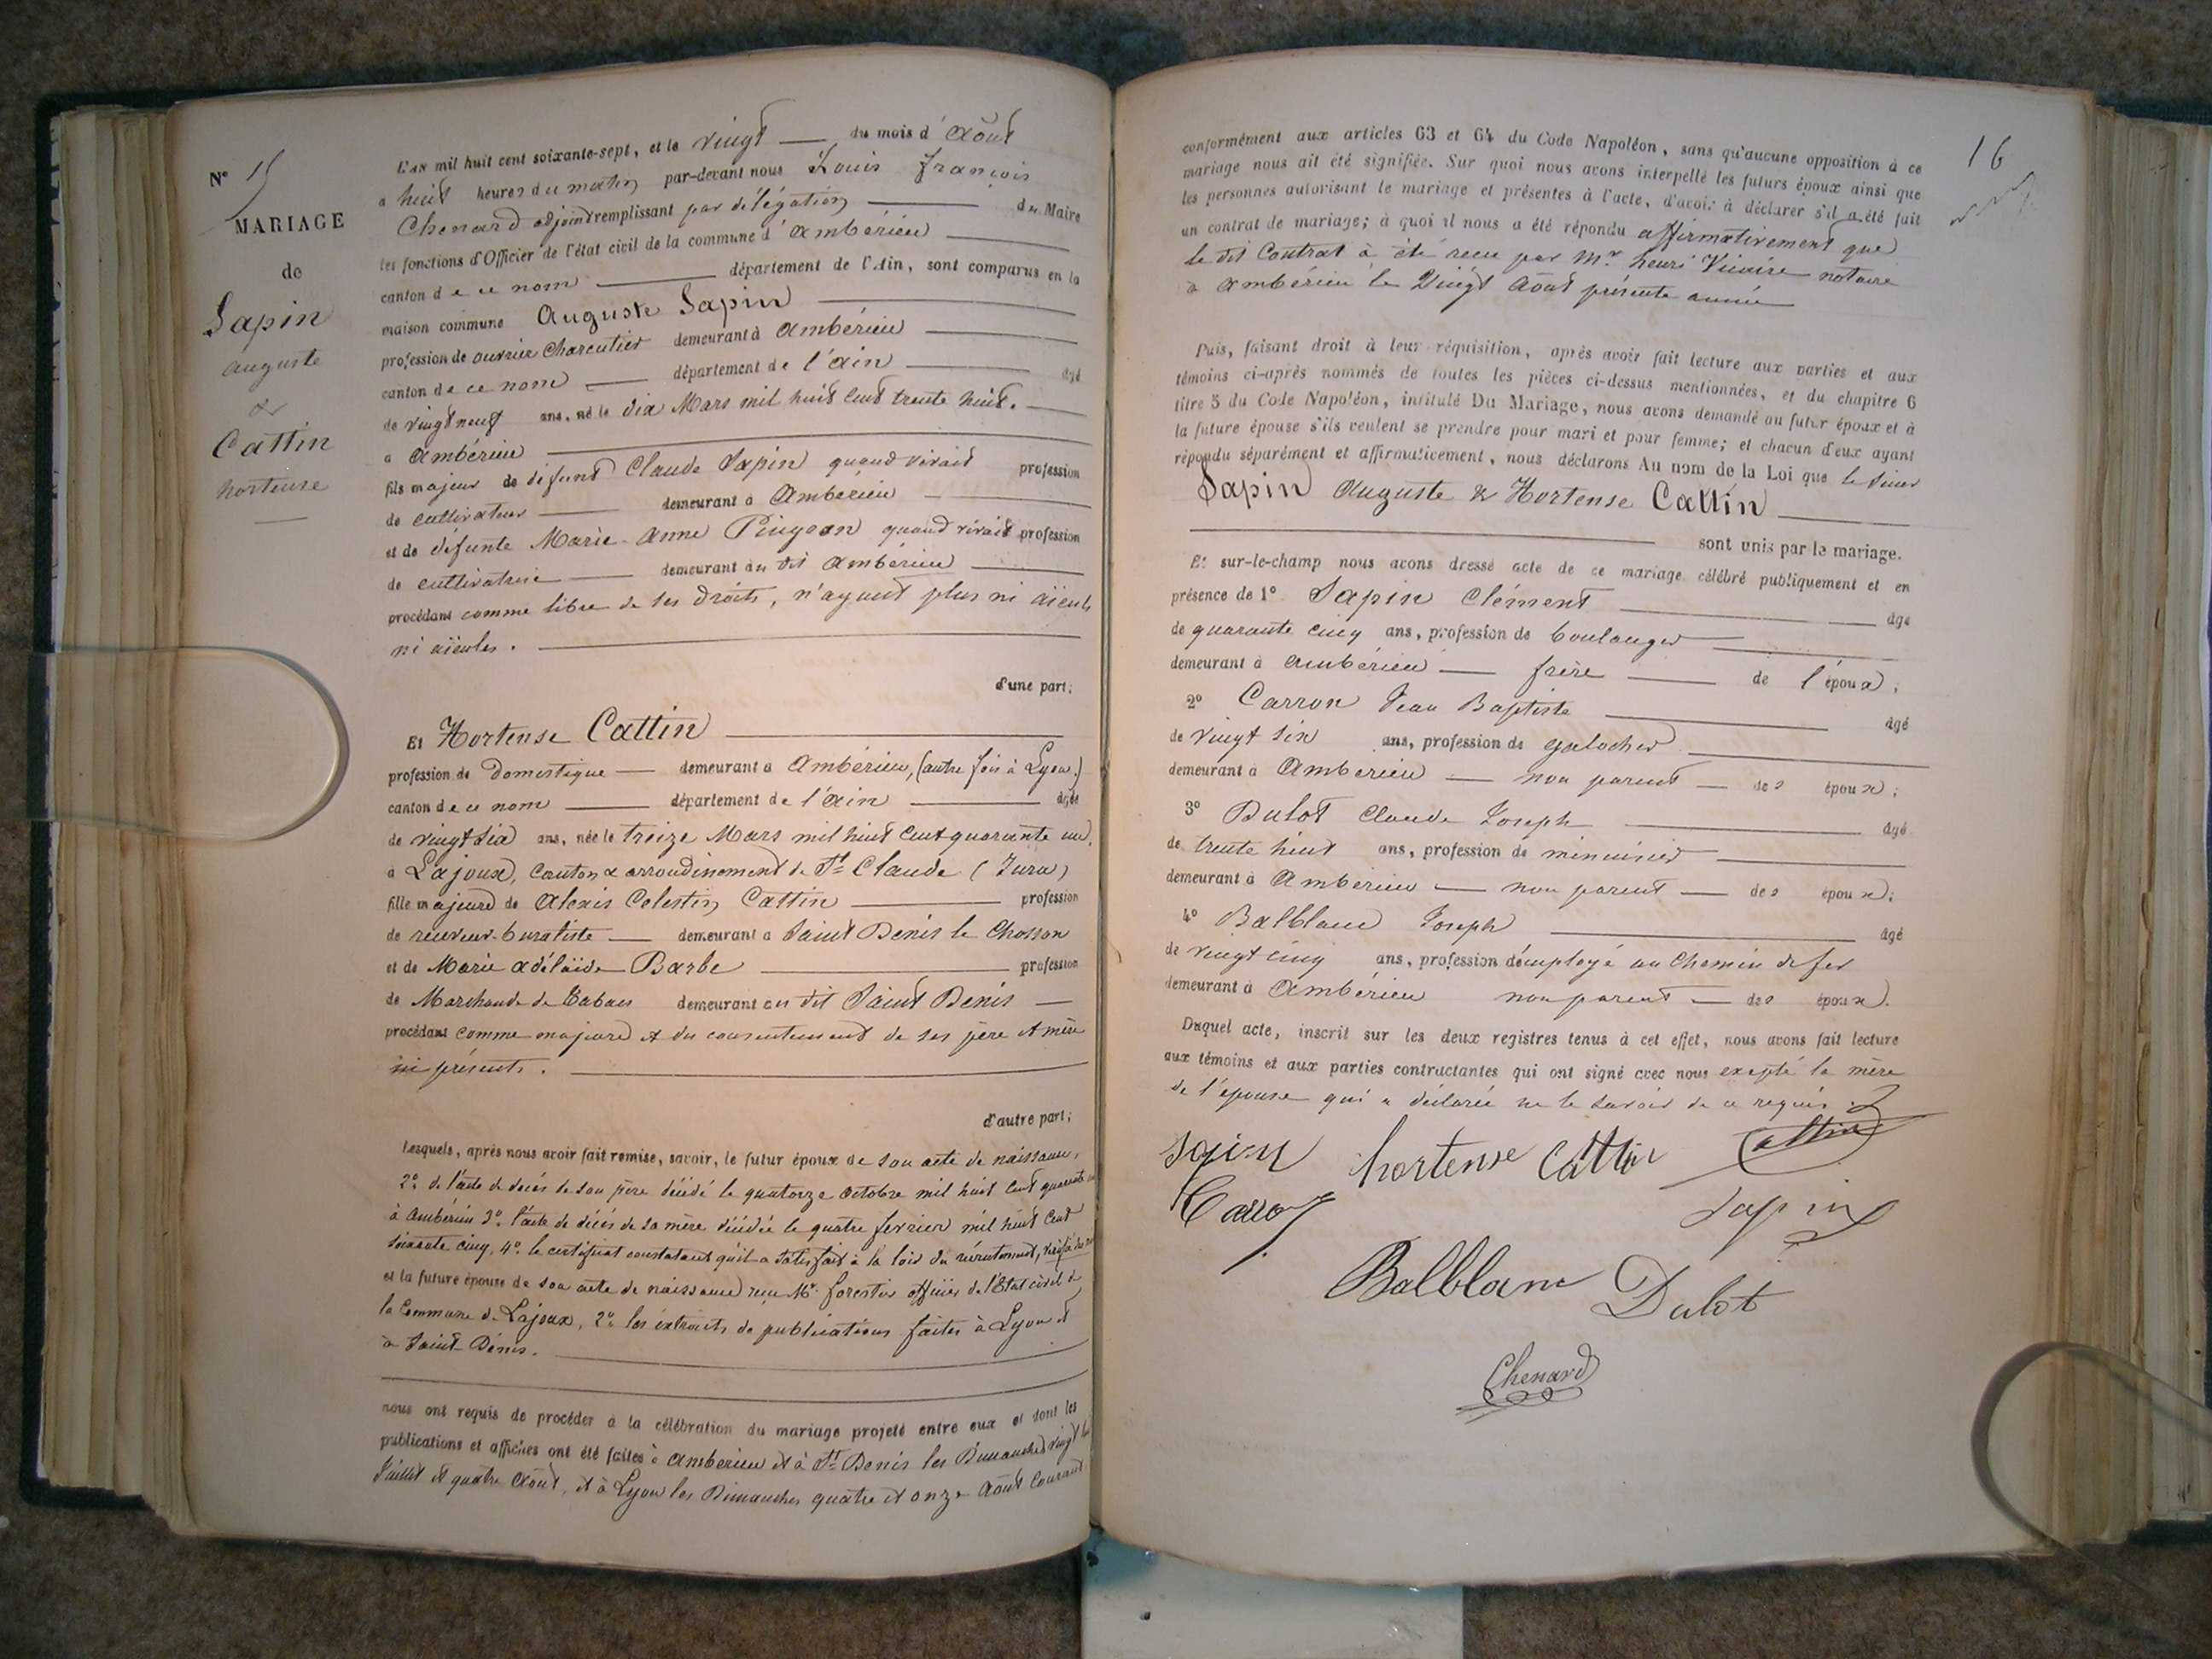 N° 15
MARIAGE
de
Sapin
auguste
&
Cattin
hortense
L'an mil huit cent soixante-sept, et le vingt du mois d'Aôut
a huit heures du matin par-devant nous Louis françois
Chenard adjoint remplissant par délégation du Maire
les fonctions d'Officier de l'état civil de la commune d'ambérieu
canton de ce nom département de l'Ain, sont comparus en la
maison commune Auguste Sapin
profession de ouvrier Charcutier demeurant à ambérieu
canton de ce nom département de l'ain agé
de vingt neuf ans, né le dix Mars mil huit cent trente huit.
a ambérieu
fils majeur de défunt Claude Sapin quand vivait profession
de cultivateur demeurant à Ambérieu
et de défunte Marie-Anne Pingeon quand vivait profession
de cultivatrice demeurant au dit ambérieu
procédant comme libre de ses droits, n'ayant plus ni aieuls
ni aieules.
d'une part;
Et Hortense Cattin
profession de Domestique demeurant a Ambérieu, (autre fois à Lyon.)
canton de ce nom département de l'ain agée
de vingt six ans, née le treize Mars mil huit cent quarante un,
à Lajoux, canton & arrondissement de St Claude (Jura)
fille majeure de Alexis Celestin Cattin profession
de receveur-buraliste demeurant a Saint Denis le Chosson
et de Marie adélaïde Barbe profession
de Marchande de Tabacs demeurant au dit Saint Denis
procédant comme majeure et du consentement de ses père et mère
ici présents.
d'autre part;
Lesquels, après nous avoir fait remise, savoir, le futur époux de son acte de naissance,
2° de l'acte de décés de son père décédé le quatorze octobre mil huit cent quarante
à ambérieu 3° l'acte de décés de sa mère décédée le quatre fevrier mil huit cent
soixante cinq, 4° le certificat constatant qu'il a satisfait à la loi du recrutement,
et la future épouse de son acte de naissance reçu Mr forestier officier de l'Etat civil de
la Commune de Lajoux, 2° les extraits de publications faites à Lyon et
à Saint Denis.
nous ont requis de procéder à la célébration du mariage projeté entre eux et dont les
publications et affiches ont été faites à ambérieu et à St Denis les Dimanches vingt huit
Juillet et quatre Aôut, et à Lyon les Dimanches quatre et onze Aôut Courant
16
conformément aux articles 63 et 64 du Code Napoléon, sans qu'aucune opposition à ce
mariage nous ait été signifiée. Sur quoi nous avons interpellé les futurs époux ainsi que
les personnes autorisant le mariage et présentes à l'acte, d'avoir à déclarer s'il a été fait
un contrat de mariage; à quoi il nous a été répondu affirmativement que
le dit Contrat à été recu par Mr henri notaire
à ambérieu le Vingt Aôut présente année
Puis, faisant droit à leur réquisition, après avoir fait lecture aux parties et aux
témoins ci-après nommés de toutes les pièces ci-dessus mentionnées, et du chapitre 6
titre 5 du Code Napoléon, intitulé Du Mariage, nous avons demandé au futur époux et à
la future épouse s'ils veulent se prendre pour mari et pour femme; et chacun d'eux ayant
répondu séparément et affirmativement, nous déclarons Au nom de la Loi que le sieur
Sapin Auguste & Hortense Cattin
sont unis par le mariage.
Et sur-le-champ nous avons dressé acte de ce mariage célébré publiquement et en
présence de 1° Sapin Clément âgé
de quarante cinq ans, profession de boulanger
demeurant à ambérieu frère de l'époux;
2° Carron Jean Baptiste âgé
de vingt six ans, profession de galocher
demeurant a Amberieu non parent des époux;
3° Dulot Claude Joseph âgé
de trente huit ans, profession de menuisier
demeurant à Amberieu non parent des époux;
4° Balblanc Joseph âgé
de vingt cinq ans, profession d'employé au Chemin de fer
demeurant à Ambérieu non parent des époux.
Duquel acte, inscrit sur les deux registres tenus à cet effet, nous avons fait lecture
aux témoins et aux parties contractantes qui ont signé avec nous excepté la mère
de l'épouse qui a déclarée ne le savoir de ce requis.
Sapin hortense Cattin Cattin
Carron Sapin
Balblanc Dulot
Chenard